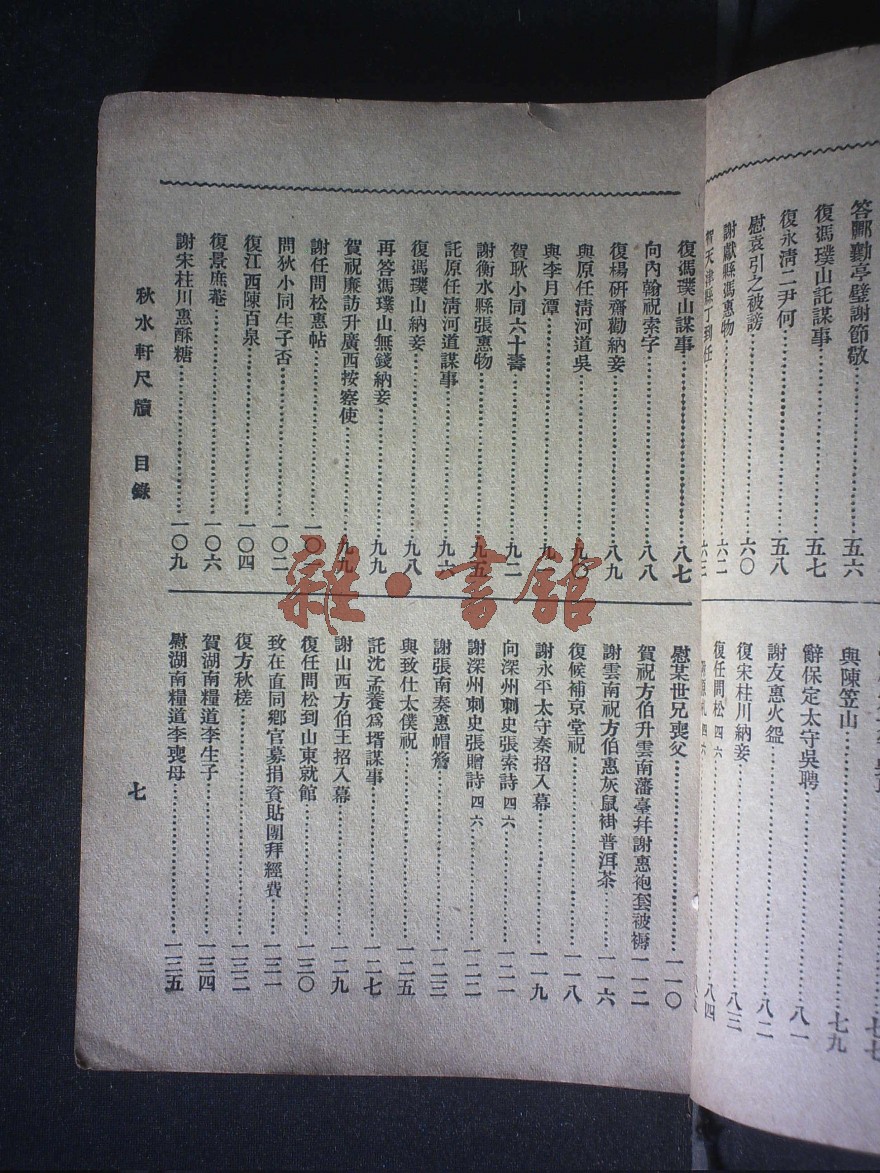 答酈勷亭璧謝節敬……五六
復馮璞山託謀事……五七
復永清二尹何……五八
慰袁引之被謗……六〇
謝獻縣馮惠物……六二
賀天津縣丁到任……六三
與陳笠山……七九
辭保定太守吳聘……八一
謝友惠火盌……八二
復宋桂川納妾……八三
復任問松 四六……八四
復馮璞山謀事……八七
向內翰祝索字……八八
復楊硏齋勸納妾……八九
與原任清河道吳……九〇
與李月潭……九一
賀耿小同六十壽……九二
謝衡水縣張惠物……九五
託原任清河道謀事……九六
復馮璞山納妾……九八
再答馮璞山無錢納妾……九九
賀祝廉訪升廣西按察使……九九
謝任問松惠帖……一〇一
問狄小同生子否……一〇二
復江西陳百泉……一〇四
復景庶菴……一〇六
謝宋桂川惠酥糖……一〇九
慰某世兄喪父……一一〇
賀祝方伯升雲南藩臺幷謝惠袍套被褥一一二
謝雲南祝方伯惠灰鼠褂普洱茶……一一六
復候補京堂祝……一一八
謝永平太守秦招入幕……一一九
向深州刺史張索詩 四六……一二一
謝深州刺史張贈詩 四六……一二二
謝張南秦惠帽簷……一二三
與致仕太僕祝……一二五
託沈孟養爲壻謀事……一二七
謝山西方伯王招入幕……一二九
復任問松到山東就館……一三〇
致在直同鄉官募捐資貼團拜經費……一三一
復方秋槎……一三二
賀湖南糧道李生子……一三四
慰湖南糧道李喪母……一三五
秋水軒尺牘 目錄
七
雜·書館